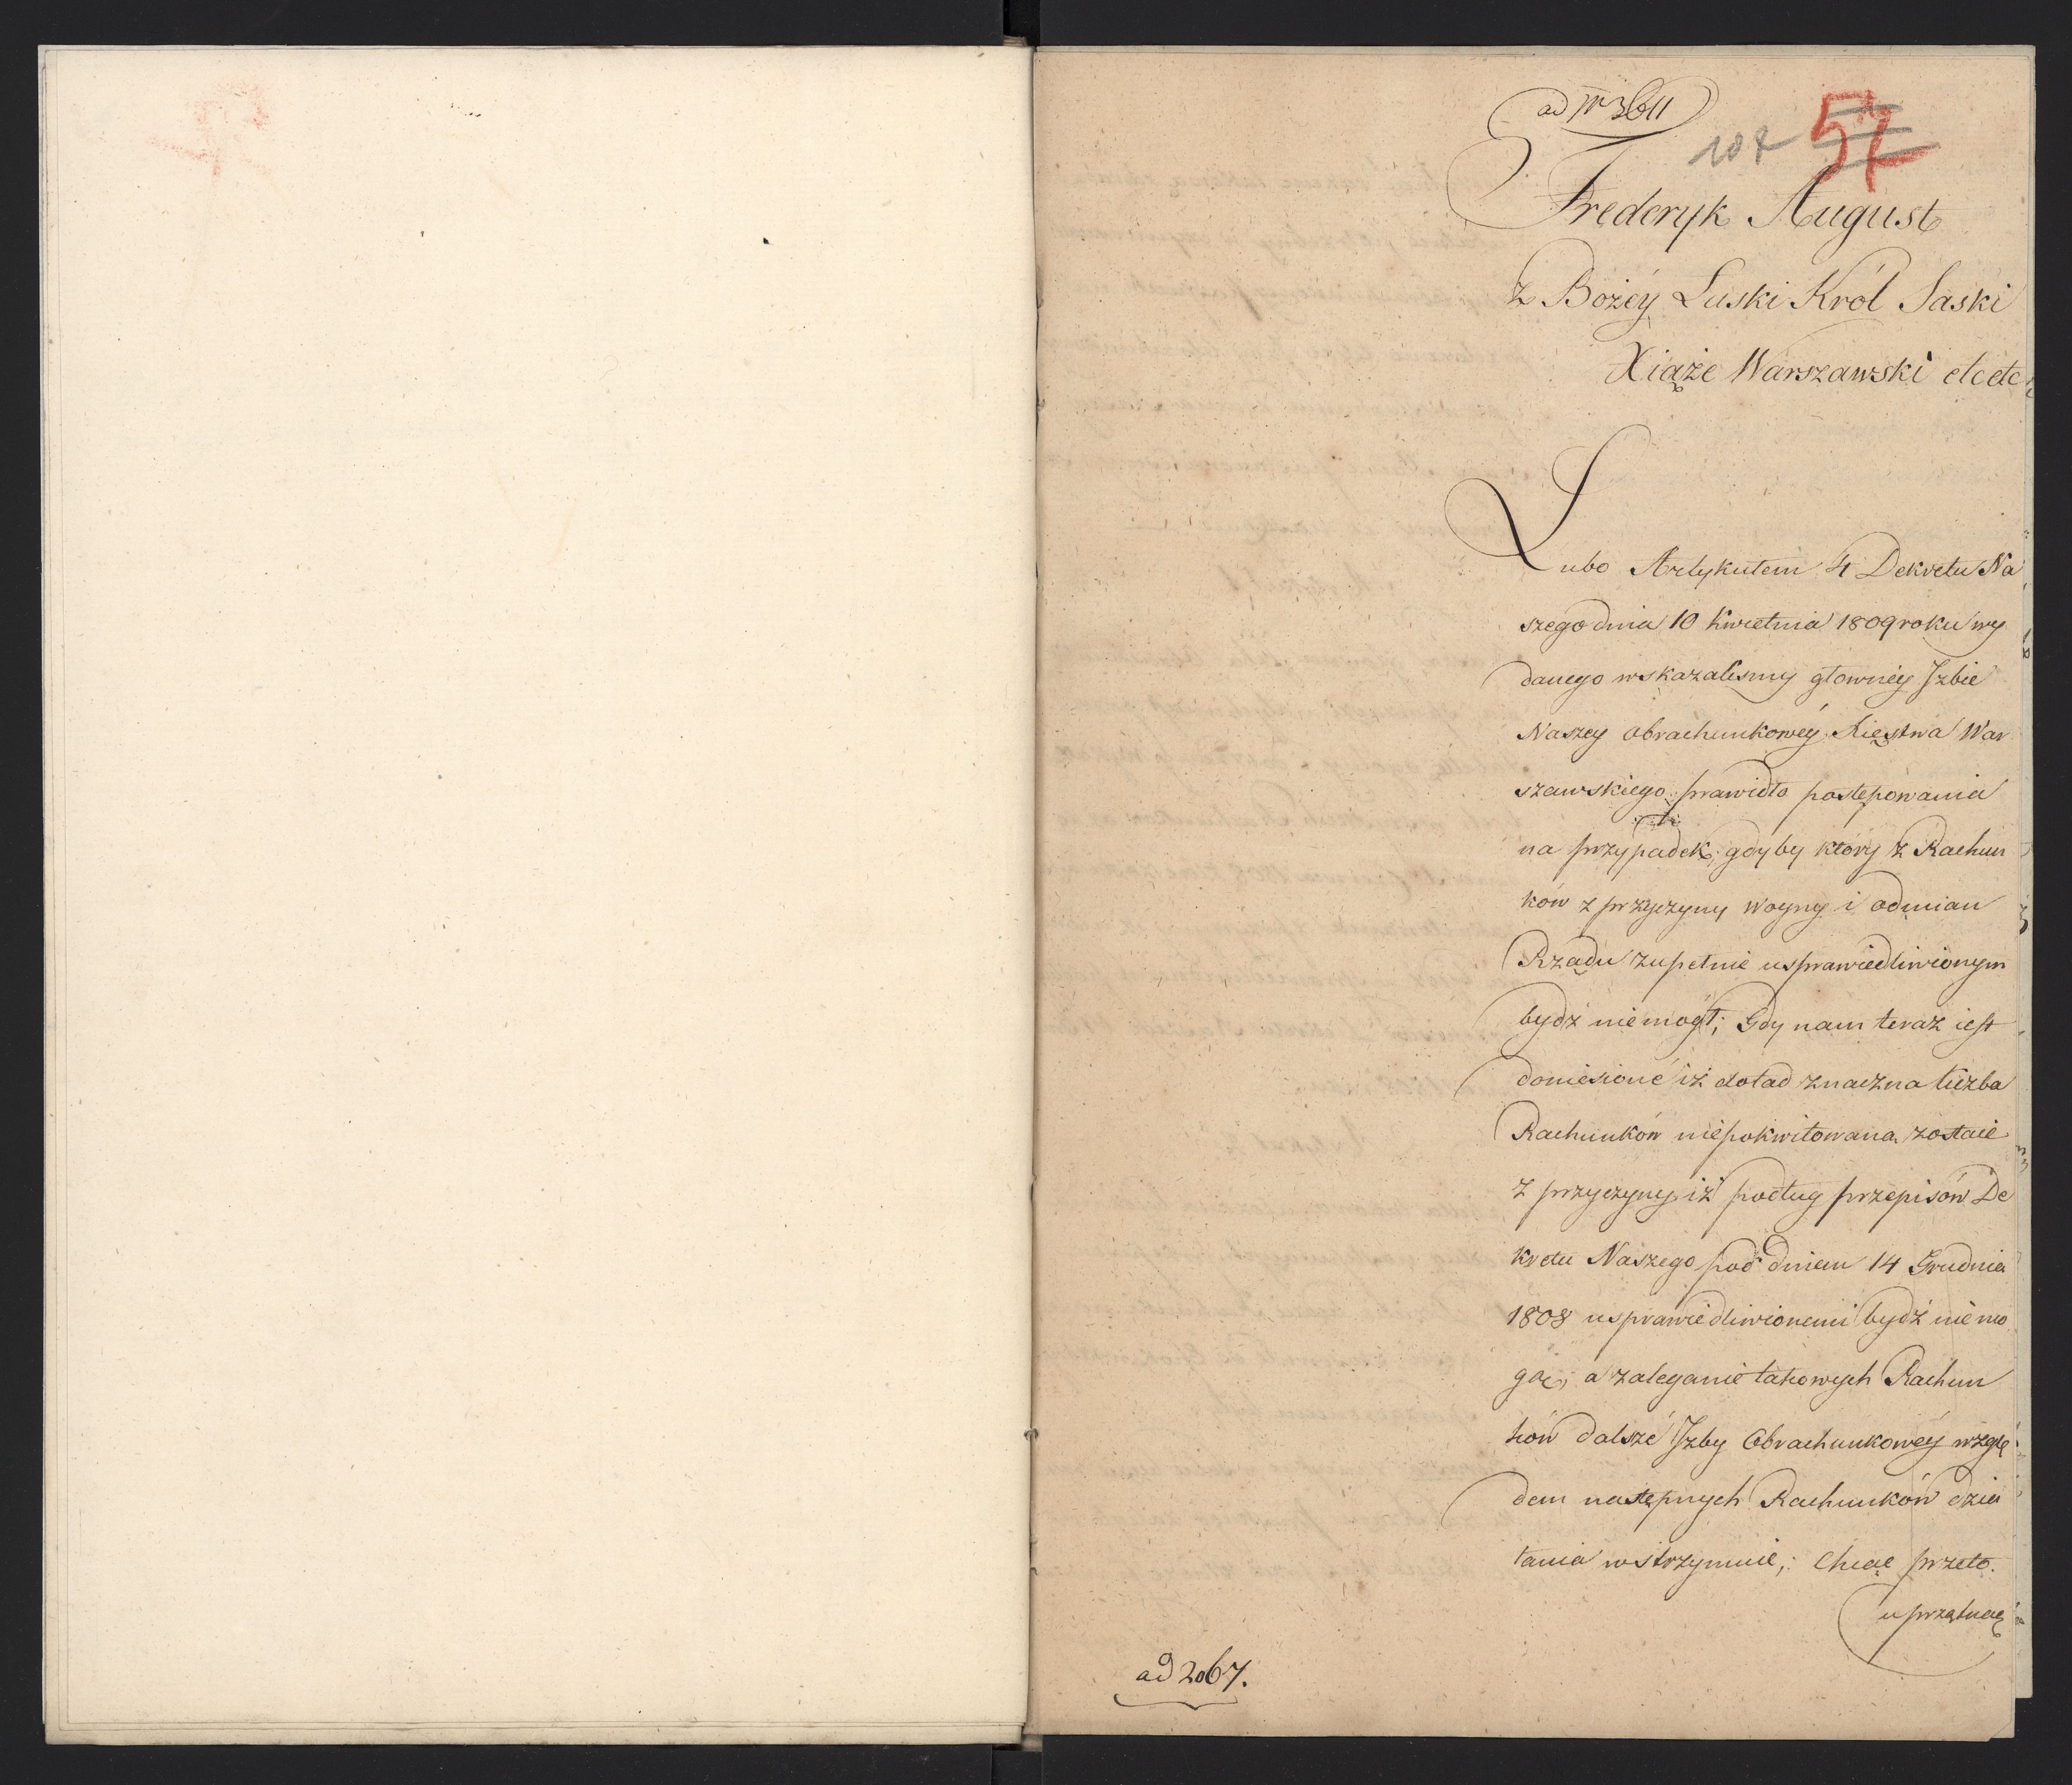 ad Nr 3611
107 57
Frederyk August
z Bożéy Łaski Król Saski
Xiąże Warszawski etc etc
Lubo Artykułem 4 Dekretu Na
szego dnia 10 Kwietnia 1809 roku wy
danego wskazalismy głownéy Jzbie
Naszey obrachunkowéy Xięstwa War
szawskiego prawidło postępowania
na przypadek, gdyby który z Rachun
ków z przyczyny woyny i odmian
Rządu zupełnie usprawiedliwionym
bydź niemógł; Gdy nam teraz iest
doniesioné iż dotąd znaczna liczba
Rachunków niepokwitowana zostaie
z przyczyny iż podług przepisów De
kretu Naszego pod dniem 14 Grudnia
1808 usprawiedliwionemi bydź niemo
gą, a zaleganie takowych Rachun
ków dalszé Jzby Obrachunkowéy wzglę
dem następnych Rachunków dzia
łania wstrzymuie; Chcąc przeto
uprzątnąć
ad 2067.